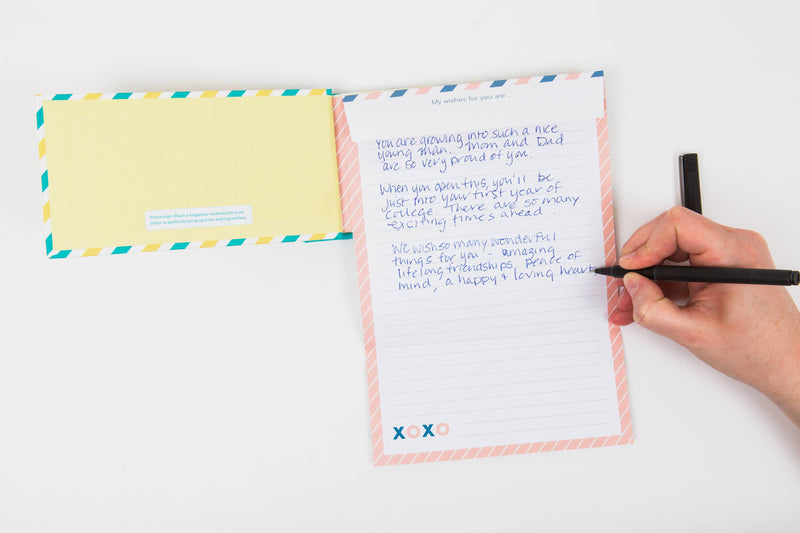 Postscript: Place a magazine underneath your
letter to perfectly prop up your writing surface.
My wishes for you are . . .
You are growing into such a nice
young man. Mom and Dad
are so very proud of you.
When you open this, you'll be
just into your first year of
college. There are so many
exciting times ahead..
We wish so many wonderful
things for you - amazing
lifelong friendships, peace of
mind, a happy & loving heart
XOXO